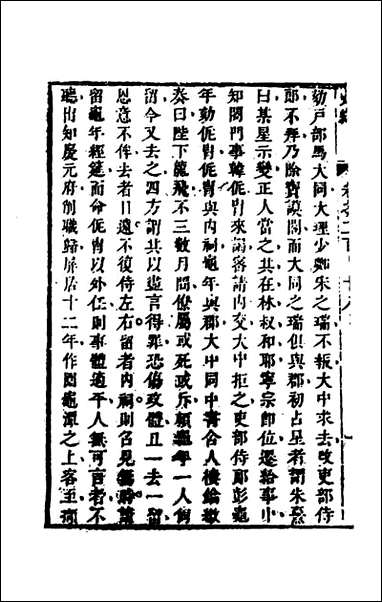 劾戶部馬大同大理少卿朱之瑞不報大中求去改吏部侍
郎不拜乃除寶謨閣而大同之瑞俱與郡初占星者謂朱熹
曰某星示變正人當之其在林叔和耶寧宗即位遷給事中
知閤門事韓侂冑來謁密請內交大中拒之吏部侍郎彭龜
年劾侂冑侂冑與內祠龜年與郡大中同中書舍人樓鑰繳
奏曰陛下龍飛不三數月間僚屬或死或斥賴龜年一人尚
留今又去之四方謂其以盡言得罪恐傷政體且一去一留
恩意不侔去者日遠不復侍左右留者內祠則召見無時請
留龜年經筵而命侂冑以外任則事體適平人無可言者不
聽出知慶元府削職歸屏居十二年作園龜潭之上客至觴